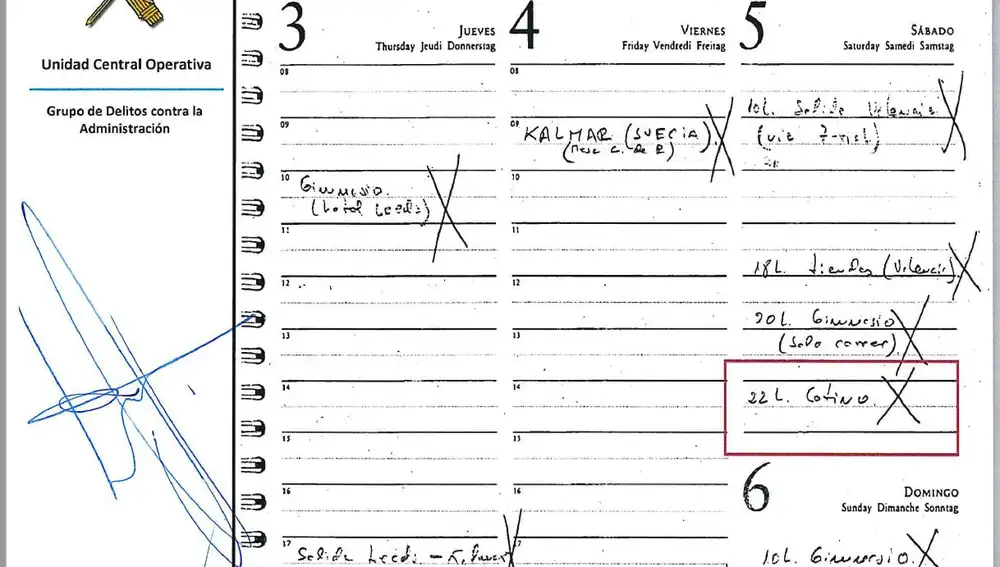 Unidad Central Operativa
Grupo de Delitos contra la
Administración
3
JUEVES
Thursday Jeudi Donnerstag
08
09
10
Gimnasio.
(hotel Leeds)
11
12
13
14
15
16
17
Salida Leeds –
4
VIERNES
Friday Vendredi Freitag
08
09
KALMAR (SUECIA)
10
11
12
13
14
15
16
17
5
SÁBADO
Saturday Samedi Samstag
10h. Salida Valencia
18h. tiendas (Valencia)
20h. Gimnasio
(solo correr)
22h. Cotino
6
DOMINGO
Sunday Dimanche Sonntag
10h. Gimnasio.